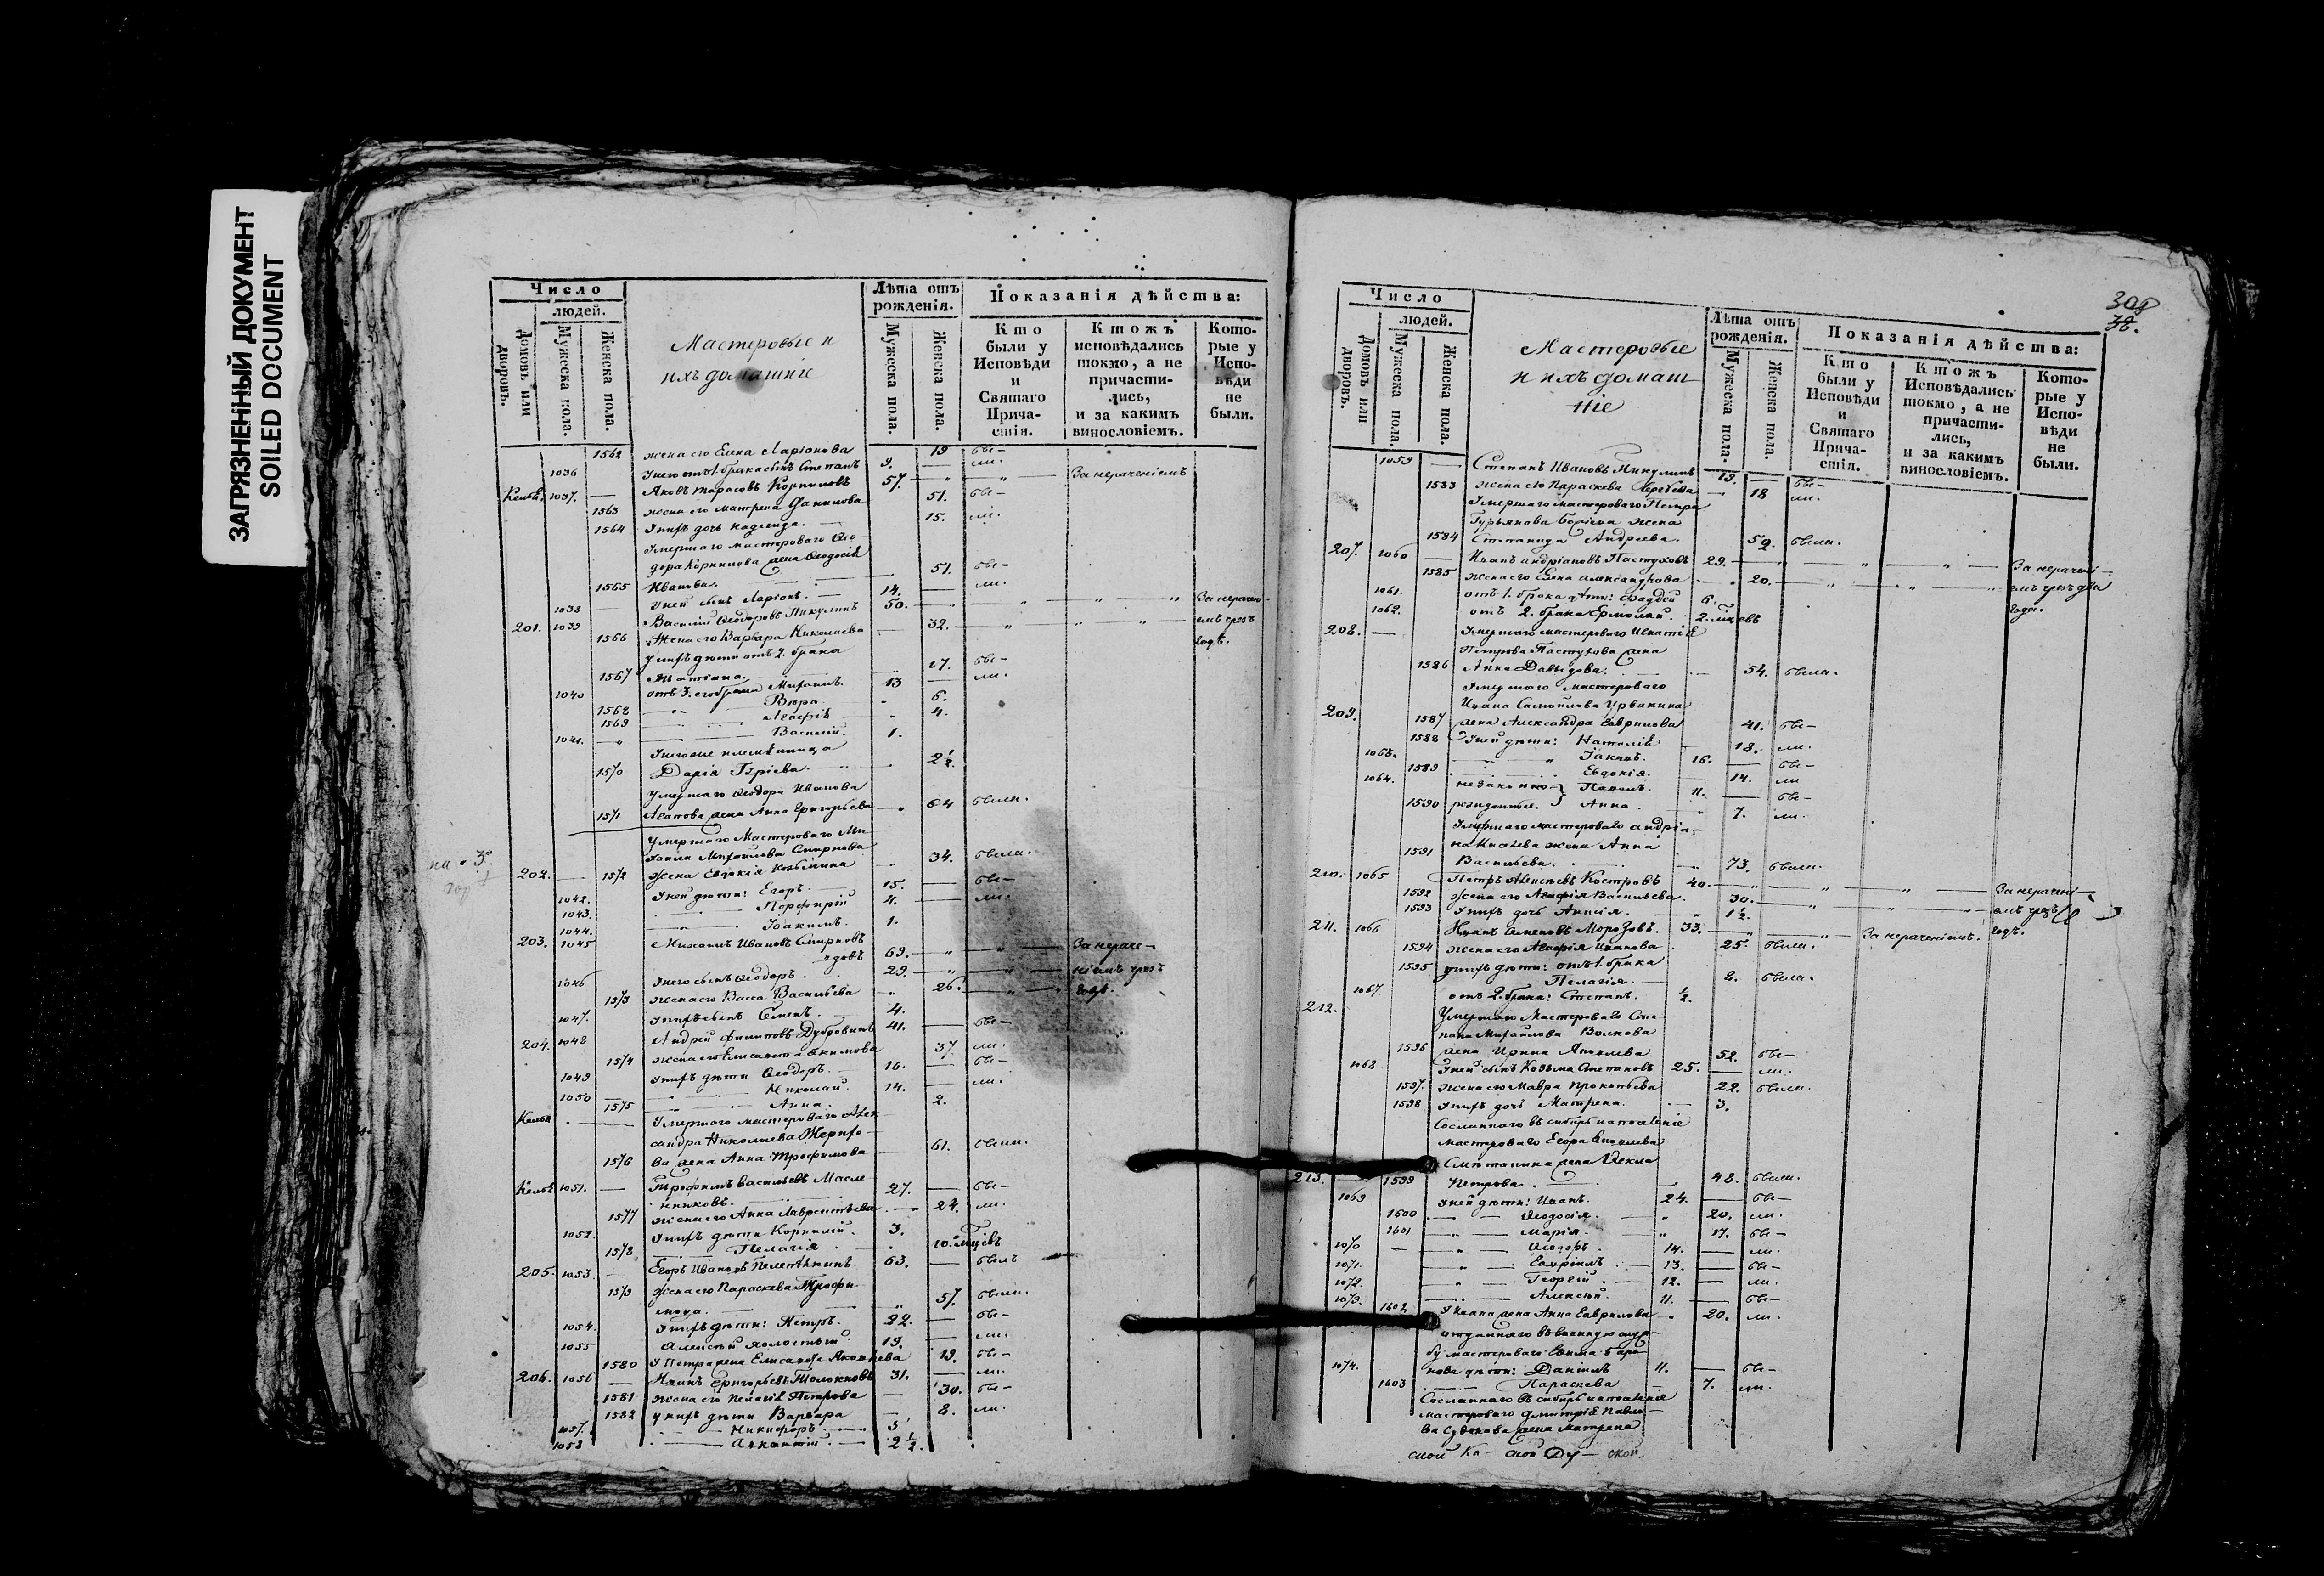 ЗАГРЯЗНЕННЫЙ ДОКУМЕНТ
SOILED DOCUMENT
Число
людей.
Домовъ или дворовъ.
Мужеска пола.
Женска пола.
Мастеровые и
ихъ домашніе
Лѣта отъ рожденія.
Мужеска пола.
Женска пола.
Показанія дѣйства:
Кто были у Исповѣди и Святаго Прича-стія.
Ктожъ исповѣдались токмо, а не причасти-лись, и за какимъ винословіемъ.
Кото-рые у Испо-вѣди не были.
1562 жена его Елена Ларіонова 19 бы-
1036 У него отъ 1. брака сынъ Степанъ 9. — ли.
1037. — Яковъ Тарасовъ Корниловъ 57. За нераченіемъ
1563 жена его Матрена Данилова 51. бы-
1564 У нихъ дочь Надежда. 15. ли.
Умершаго мастероваго Ѳео-
дора Корнилова жена Ѳеодосія
1565 Иванова. 51. бы-
1038 У ней сынъ Ларіонъ. 14. — ли.
201. 1039 Василій Ѳеодоровъ Пикулинъ 50. За нерачені-
1566 Жена его Варвара Николаева 32. емъ чрезъ
У нихъ дѣти отъ 2. брака годъ.
1567 Татіана. 17. бы-
1040 отъ 3. его брака Михаилъ. 13 — ли.
1568 Вѣра. 6.
1569 Агафія 4.
1041. Василій. 1.
У него же племянница
1570 Дарія 2½.
Умершаго Ѳеодора Иванова
1571 жена Анна Григорьева 64 была.
Умершаго Мастероваго Ми-
хаила Михайлова Смирнова
202. 1572 Жена Евдокія Козьмина 34. была.
1042. У ней дѣти: Егоръ. 15. — бы-
1043. Порфирій 4. — ли.
1044. Іоакимъ. 1.
203. 1045 Михаилъ Ивановъ Смирновъ
69. За нераче-
1046 У него сынъ Ѳеодоръ. 29. ніемъ чрезъ
1573 Жена его Васса Васильева 26. годъ.
1047. У нихъ сынъ Семенъ. 4.
204. 1048 Андрей Филиповъ Дубровинъ 41. — бы-
1574 Жена его Елисавета Екимова 37. ли.
1049 У нихъ дѣти Ѳеодоръ. 16. — бы-
1050 Николай. 14. — ли.
1575 Анна. 2.
Умершаго мастероваго Алек-
сандра Николаева
1576 жена Анна Трофимова 61. была.
1051. — Трофимъ Васильевъ Масле-
никовъ. 27. — бы-
1577 Жена его Анна Лаврентьева 24. ли.
1052. У нихъ дѣти Корнилій. 3.
1578 Пелагія 10. мѣцевъ
205. 1053. Егоръ Ивановъ 63. — былъ
1579 Жена его Параскева Трофи-
мова. 57. была.
1054. У нихъ дѣти: Петръ. 22. — бы-
1055 Алексѣй холостый. 19. — ли.
1580 У Петра жена Елисавета Яковлева 19. бы-
206. 1056 Иванъ Григорьевъ Толокновъ 31. — ли.
1581 Жена его Пелагія Петрова 30. бы-
1582 у нихъ дѣти Варвара 8. ли.
1057. Никифоръ 5
1058 2½.
Число
людей.
Домовъ или дворовъ.
Мужеска пола.
Женска пола.
Мастеровые
и ихъ домаш
ніе
Лѣта отъ рожденія.
Мужеска пола.
Женска пола.
Показанія дѣйства:
Кто были у Исповѣди и Святаго Прича-стія.
Ктожъ Исповѣдались токмо, а не причасти-лись, и за какимъ винословіемъ.
Кото-рые у Испо-вѣди не были.
1059 — Степанъ Ивановъ Пикулинъ 19. — бы-
1583 жена его Параскева 18 ли.
Умершаго мастероваго Петра
Гурьянова жена
1584 Степанида Андреева. 59. была.
207. 1060 — Иванъ Андріановъ Пастуховъ 29. За нерачені-
1585 Жена его Елена Александрова 20. емъ чрезъ два
1061. отъ 1. брака дѣти: Фаддей 6. года.
1062. отъ 2. брака Ермолай. 2. мѣцевъ
208. — Умершаго мастероваго Игнатія
Петрова Пастухова жена
1586 Анна Давыдова. 54. была.
Умершаго мастероваго
209. Ивана Самойлова Урванина
1587 жена Александра Гаврилова 41. бы-
1588 У ней дѣти: Наталія 18. ли.
1063. Іаковъ. 16. — бы-
1589 Евдокія. 14. ли
1064. незаконно- Павелъ. 11. — бы-
1590 рожденные. Анна. 7. ли.
Умершаго мастероваго Андріа-
1591 на жена Анна
Васильева. 73. была.
210. 1065 Петръ Алексѣевъ Костровъ 40. За нерачені-
1592 Жена его Агафія Васильева. 30. емъ чрезъ
1593 У нихъ дочь Анисія. 1½. годъ.
211. 1066 Иванъ Семеновъ Морозовъ. 33. За нераченіемъ.
1594 Жена его Агафія Иванова 25. была.
1595 у нихъ дѣти: отъ 1. брака
Пелагія. 8. была.
1067. отъ 2. брака: Степанъ. ½.
212. Умершаго Мастероваго Сте-
пана Михайлова Волкова
1596 жена Ирина Яковлева 52. бы-
1068 У ней сынъ Козьма Степановъ 25. — ли.
1597. Жена его Мавра Прокопьева 22. была.
1598 У нихъ дочь Матрена. 3.
Сосланнаго въ сибирь на поселеніе
мастероваго Егора
Сметанина жена Ѳекла
213. 1599 Петрова. 48. была.
1069 У ней дѣти: Иванъ. 24. — бы-
1600 Ѳеодосія. 20. ли.
1601 Марія. 17. бы-
1070 Ѳеодоръ. 14. — ли.
1071. Гавріилъ. 13. — бы-
1072. Георгій. 12. — ли.
1073. Алексѣй. 11. — бы-
1602 У Ивана жена Анна Гаврилова 20. ли.
отданнаго въ военную служ-
бу мастероваго
1074. дѣти: Даніилъ 11. — бы-
1603 Параскева 7. ли.
Сосланнаго въ сибирь на поселеніе
мастероваго Дмитрія Павло-
ва Судакова жена Матрена